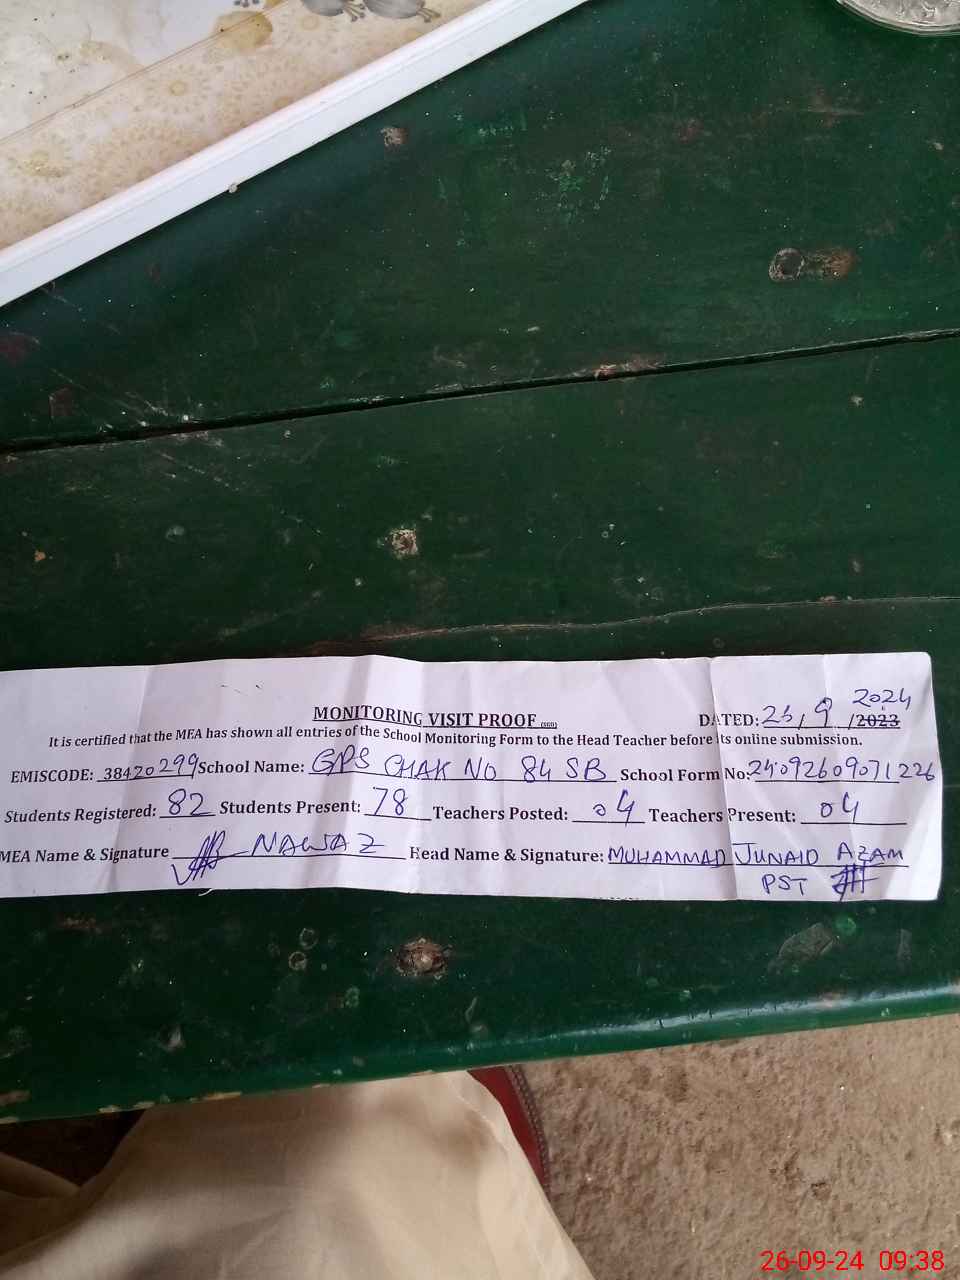 MONITORING VISIT PROOF (SGD) DATED: 26/9/2023 2024
It is certified that the MEA has shown all entries of the School Monitoring Form to the Head Teacher before its online submission.
EMISCODE: 38420299 School Name: GPS CHAK NO 84 SB School Form No: 24092609071226
Students Registered: 82 Students Present: 78 Teachers Posted: 04 Teachers Present: 04
MEA Name & Signature NAWAZ Head Name & Signature: MUHAMMAD JUNAID AZAM
PST
26-09-24 09:38